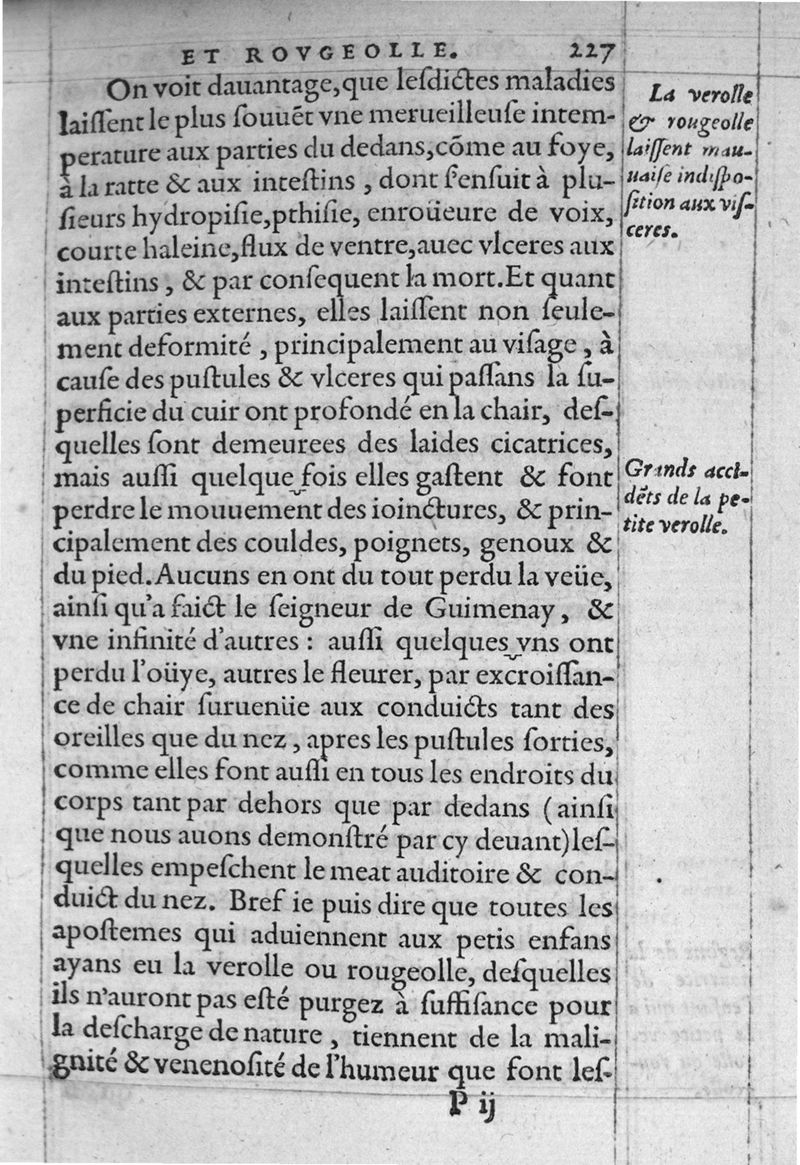 ET ROVGEOLLE. 227
On voit dauantage, que leſdictes maladies
laiſſent le plus ſouuẽt vne merueilleuſe intem-
perature aux parties du dedans, cõme au foye,
à la ratte & aux inteſtins, dont ſ'enſuit à plu-
ſieurs hydropiſie, pthiſie, enroüeure de voix,
courte haleine, flux de ventre, auec vlceres aux
inteſtins, & par conſequent la mort. Et quant
aux parties externes, elles laiſſent non ſeule-
ment deformité, principalement au viſage, à
cauſe des puſtules & vlceres qui paſſans la ſu-
perficie du cuir ont profondé en la chair, deſ-
quelles ſont demeurees des laides cicatrices,
mais auſſi quelque fois elles gaſtent & font
perdre le mouuement des ioinctures, & prin-
cipalement des couldes, poignets, genoux &
du pied. Aucuns en ont du tout perdu la veüe,
ainſi qu'a faict le ſeigneur de Guimenay, &
vne infinité d'autres : auſſi quelques vns ont
perdu l'oüye, autres le fleurer, par excroiſſan-
ce de chair ſuruenüe aux conduicts tant des
oreilles que du nez, apres les puſtules ſorties,
comme elles font auſſi en tous les endroits du
corps tant par dehors que par dedans (ainſi
que nous auons demonſtré par cy deuant) leſ-
quelles empeſchent le meat auditoire & con-
duict du nez. Bref ie puis dire que toutes les
apoſtemes qui aduiennent aux petis enfans
ayans eu la verolle ou rougeolle, deſquelles
ils n'auront pas eſté purgez à ſuffiſance pour
la deſcharge de nature, tiennent de la mali-
gnité & venenoſité de l'humeur que font leſ-
P ij
La verolle
& rougeolle
laiſſent mau-
uaiſe indiſpo-
ſition aux viſ-
ceres.
Grands acci-
dẽts de la pe-
tite verolle.